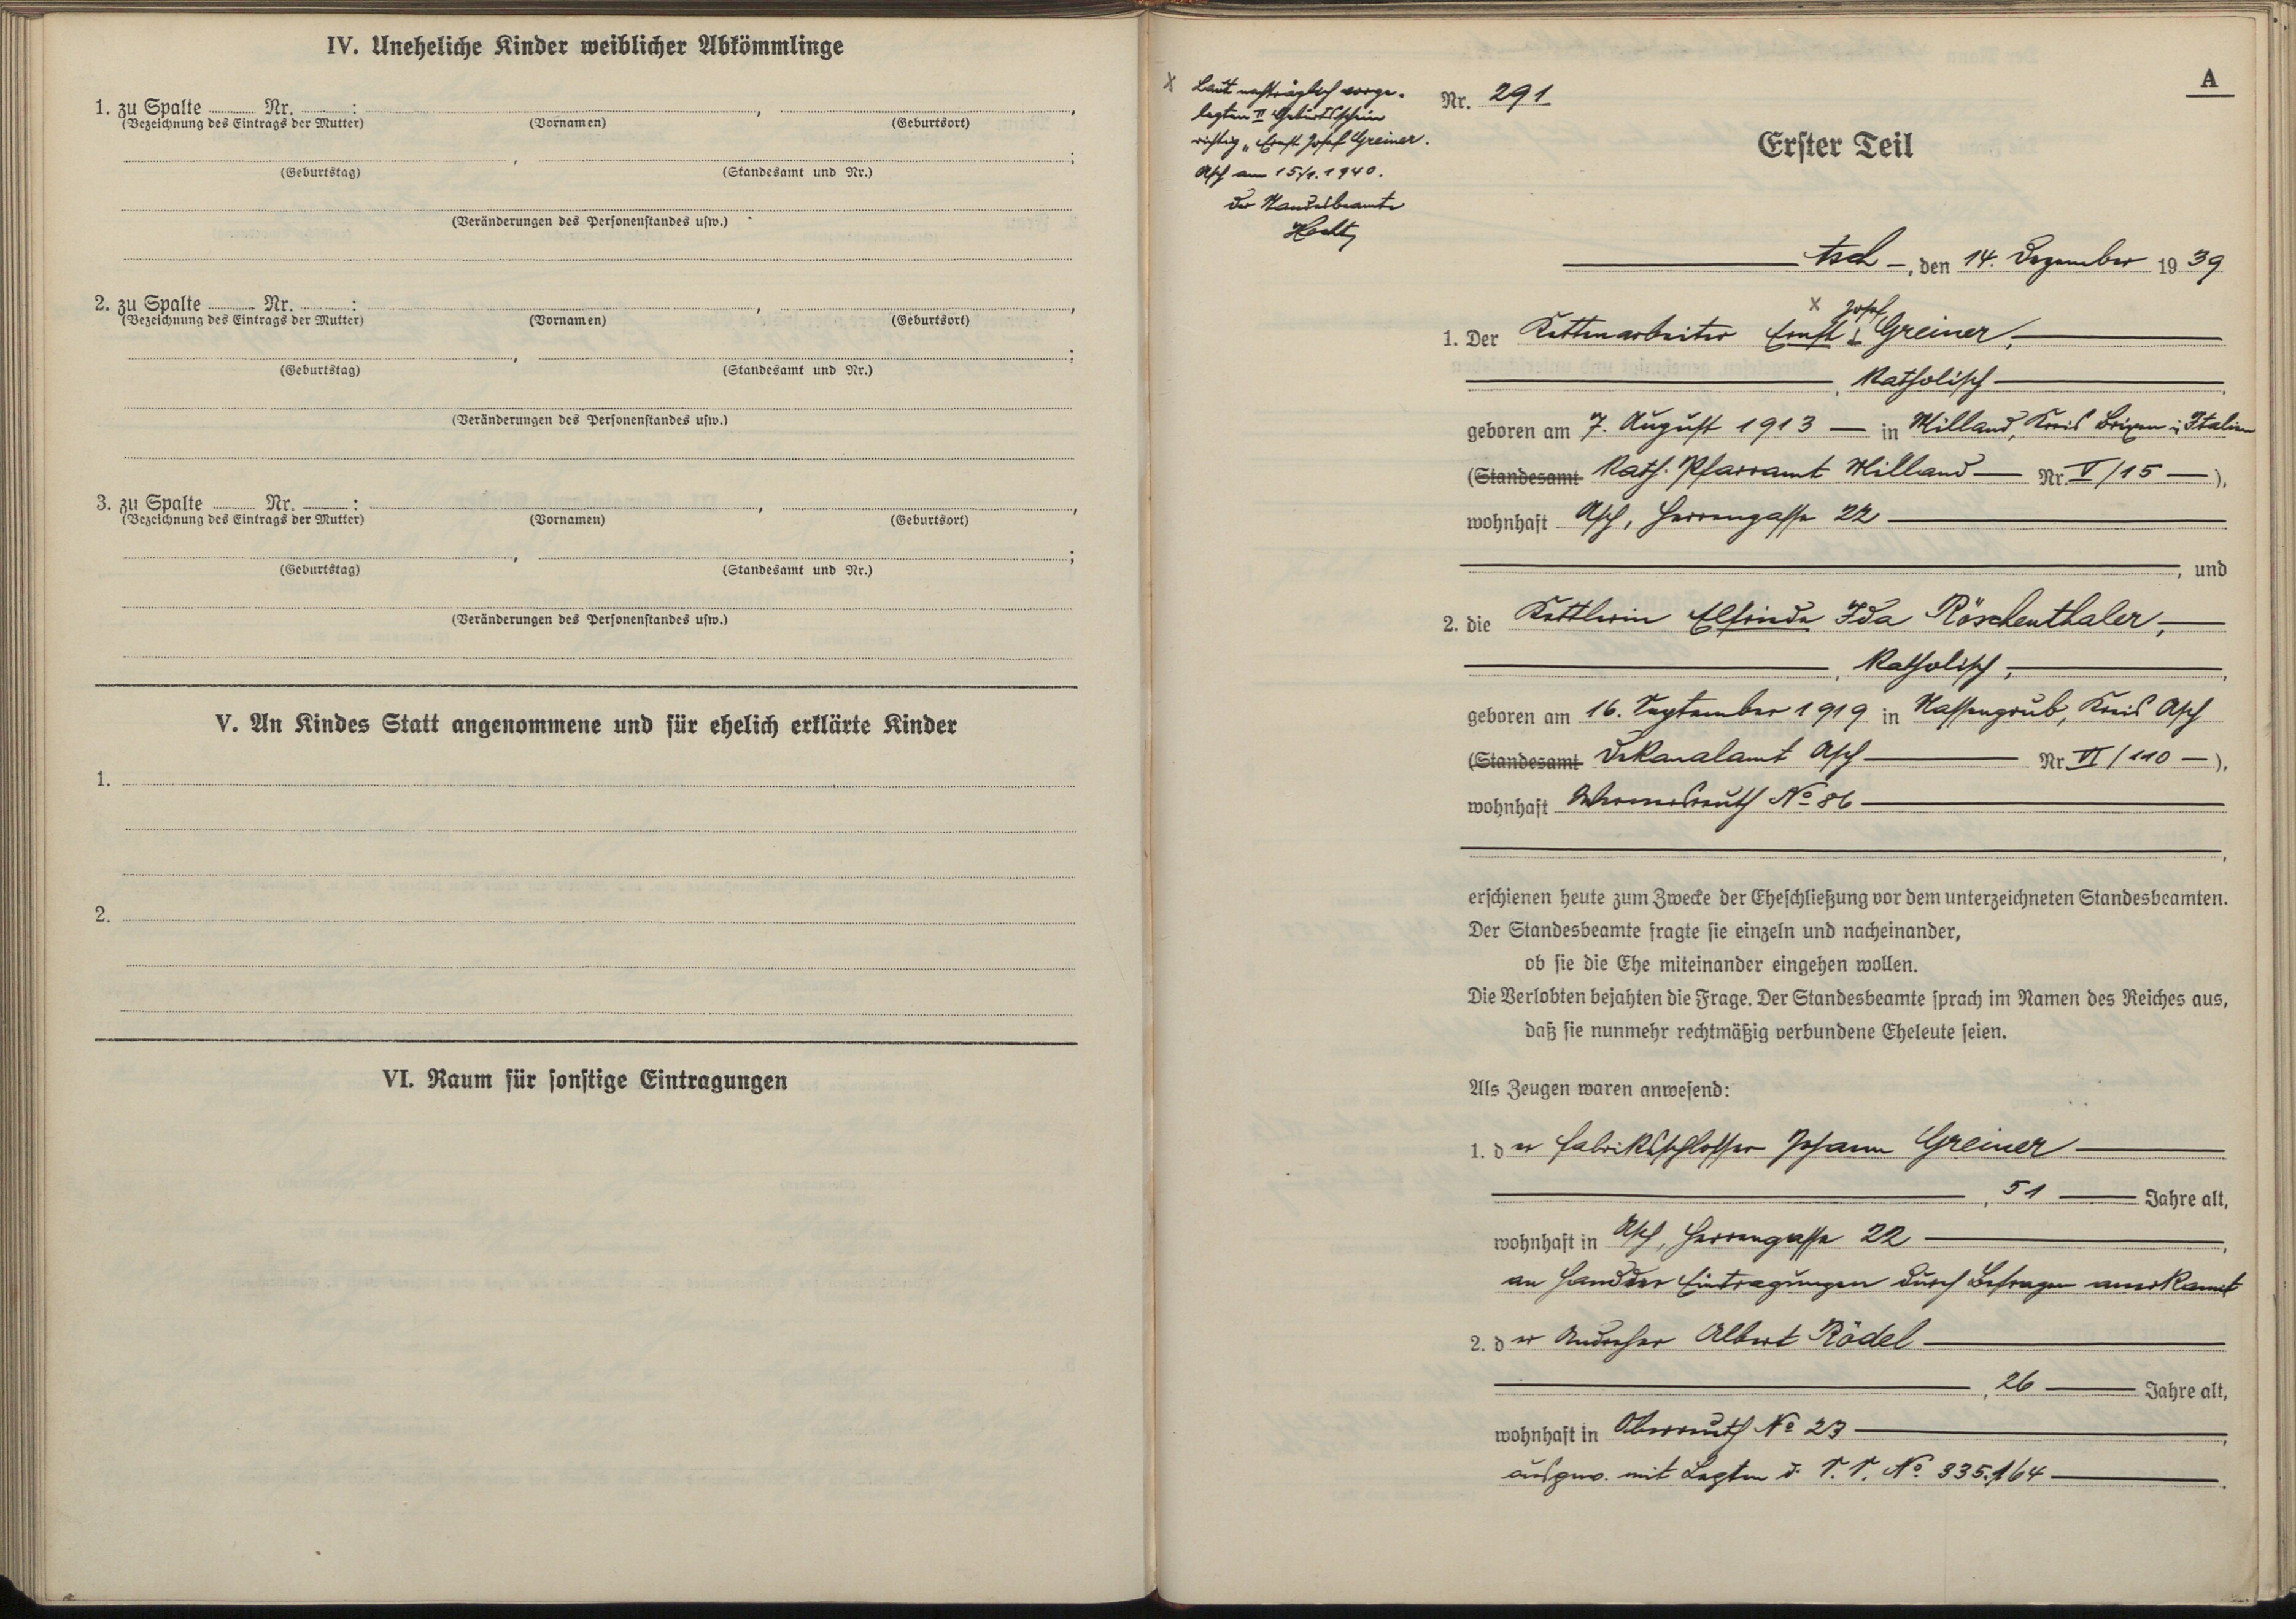 IV. Uneheliche Kinder weiblicher Abkömmlinge
1. zu Spalte Nr. : , ,
(Bezeichnung des Eintrags der Mutter) (Vornamen) (Geburtsort)
, ;
(Geburtstag) (Standesamt und Nr.)
(Veränderungen des Personenstandes usw.)
2. zu Spalte Nr. : , ,
(Bezeichnung des Eintrags der Mutter) (Vornamen) (Geburtsort)
, ;
(Geburtstag) (Standesamt und Nr.)
(Veränderungen des Personenstandes usw.)
3. zu Spalte Nr. : , ,
(Bezeichnung des Eintrags der Mutter) (Vornamen) (Geburtsort)
, ;
(Geburtstag) (Standesamt und Nr.)
(Veränderungen des Personenstandes usw.)
V. An Kindes Statt angenommene und für ehelich erklärte Kinder
1.
2.
VI. Raum für sonstige Eintragungen
A
x Laut nachträglich vorge-
legten II Geburtsschein
richtig „Ernst Josef Greiner.
Asch am 15/1. 1940.
Der Standesbeamte
Nr. 291
Erster Teil
Asch, den 14. Dezember 1939
x Josef
1. Der Kettenarbeiter Ernst Greiner,
, Katholisch ,
geboren am 7. August 1913 in Milland, Kreis Brixen i. Italien
(Standesamt Kath. Pfarramt Milland Nr. V/15 ),
wohnhaft Asch, Herrengasse 22
, und
2. die Kettlerin Elfriede Ida Röschenthaler,
, Katholisch, ,
geboren am 16. September 1919 in Nassengrub, Kreis Asch
(Standesamt Dekanalamt Asch Nr. VI/110 ),
wohnhaft Wernersreuth No 86
,
erschienen heute zum Zwecke der Eheschließung vor dem unterzeichneten Standesbeamten.
Der Standesbeamte fragte sie einzeln und nacheinander,
ob sie die Ehe miteinander eingehen wollen.
Die Verlobten bejahten die Frage. Der Standesbeamte sprach im Namen des Reiches aus,
daß sie nunmehr rechtmäßig verbundene Eheleute seien.
Als Zeugen waren anwesend:
1. der Fabrikschlosser Johann Greiner
, 51 Jahre alt,
wohnhaft in Asch, Herrengasse 22 ,
an Hand der Eintragungen durch Befragen anerkannt
2. der Andreher Albert Rödel
, 26 Jahre alt,
wohnhaft in Oberreuth No 23 ,
ausgew. mit No 335.164 .